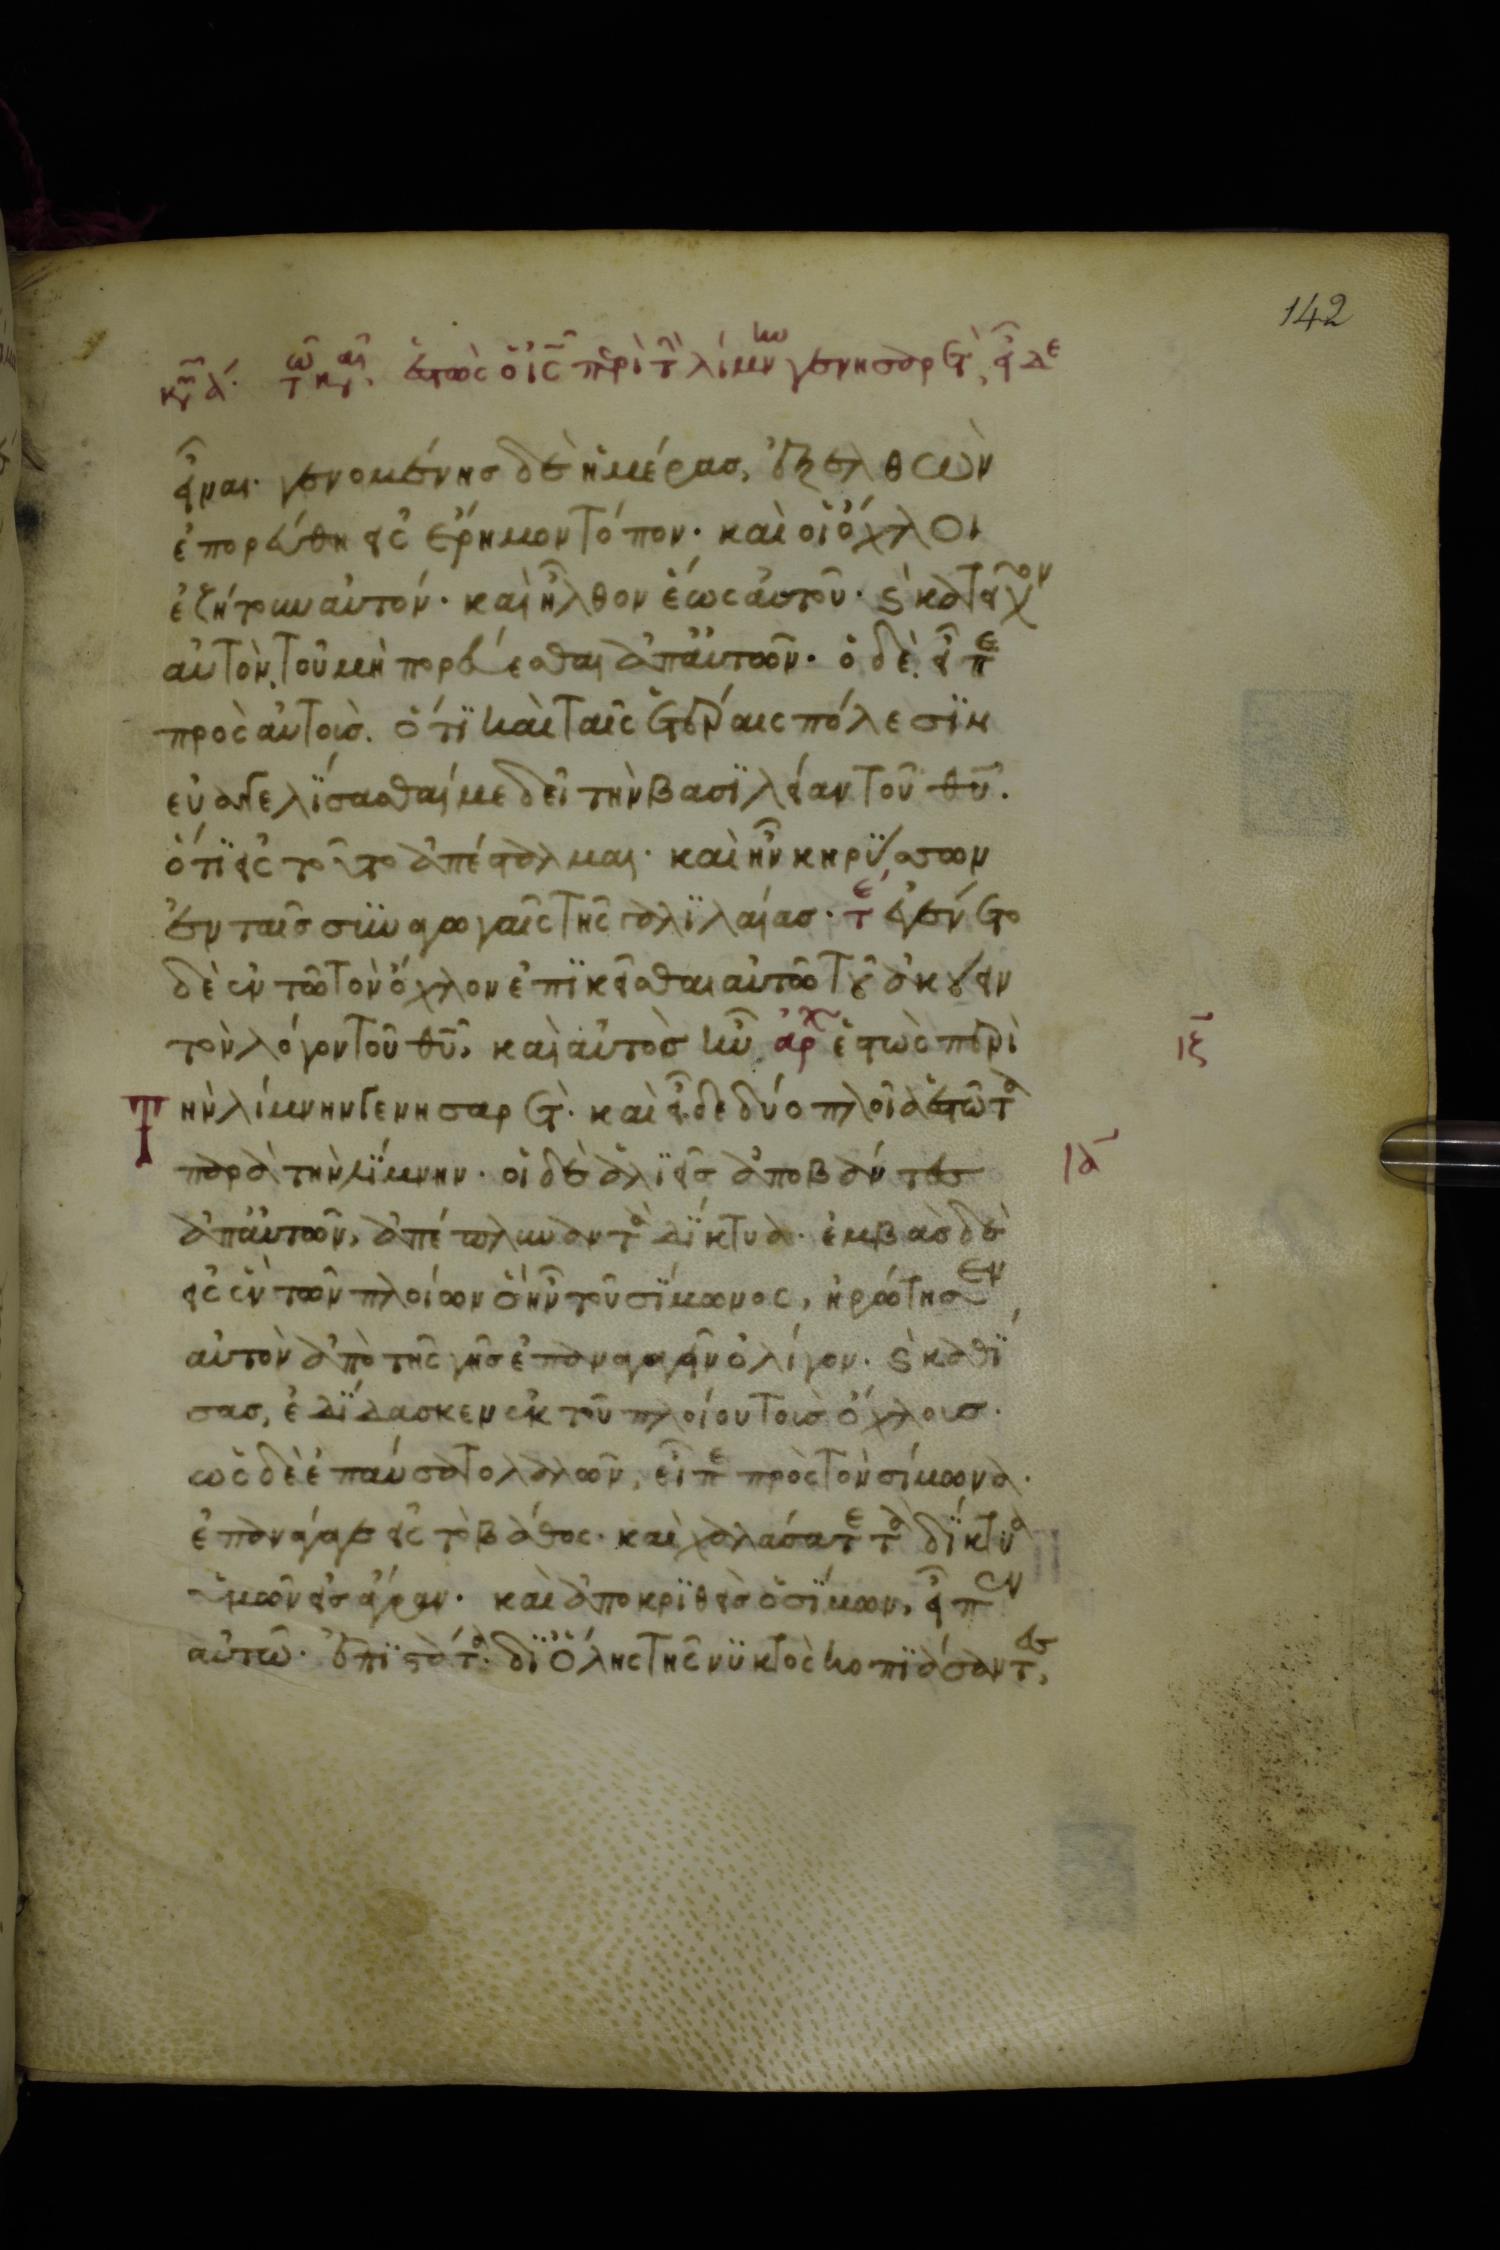 142
κυ α΄. τω και. ἑστὼς ὁ ις περὶ τ λίμνην γενησαρὲτ, εἶδε
εἶναι· γενομένης δὲ ἡμέρας, ἐξελθὼν
ἐπορεύθη εἰς ἔρημον τόπον· καὶ οἱ ὄχλοι
ἐζήτουν αὐτόν· καὶ ἦλθον ἕως αὐτοῦ· ϛ κατεῖχον
αὐτὸν, τοῦ μὴ πορεύεσθαι ἀπ αὐτῶν· ὁ δὲ εἶπε
πρὸς αὐτοὺς. ὅτϊ καὶ ταῖς ἑτέραις πόλεσϊν
εὐαγγελϊσασθαί με δεῖ τὴν βασϊλείαν τοῦ θυ.
ὅτϊ εἰς τοῦτο ἀπέσταλμαι· καὶ ἦν κηρϋσσων
ἐν ταῖς συναγωγαῖς τῆς γαλϊλαίας· τε ἐγένετο
δὲ ἐν τῶ τὸν ὄχλον ἐπϊκεῖσθαι αὐτῶ τοῦ ἀκούειν
τὸν λόγον τοῦ θυ, καὶ αὐτὸς ἦν αρχ ἑστὼς περὶ
ιξ
Τὴν λίμνην Γενησαρέτ· καὶ εἶδε δύο πλοῖα ἑστῶτα
παρὰ τὴν λΐμνην· οἱ δὲ ἁλϊεῖς ἀποβάντες
ιδ
ἀπ αὐτῶν, ἀπέπλυναν τὰ δΐκτυα· ἐμβὰς δὲ
εἰς ἓν τῶν πλοίων ὃ ἦν τοῦ σΐμωνος, ἠρώτησεν
αὐτὸν ἀπὸ τῆς γῆς ἐπαναγαγεῖν ὀλίγον· ϛ καθΐ
σας, ἐδΐδασκεν ἐκ τοῦ πλοίου τοὺς ὄχλους.
ὡς δὲ ἐπαύσατο λαλῶν, εἶπε πρὸς τὸν σίμωνα·
ἐπανάγαγε εἰς τὸ βάθος· καὶ χαλάσατε τὰ δΐκτυα
ὑμῶν εἰς ἄγραν· καὶ ἀποκρϊθεὶς ὁ σΐμων, εἶπεν
αὐτῶ· ἐπϊστάτα· δϊ ὅλης τῆς νϋκτὸς κοπϊάσαντες,